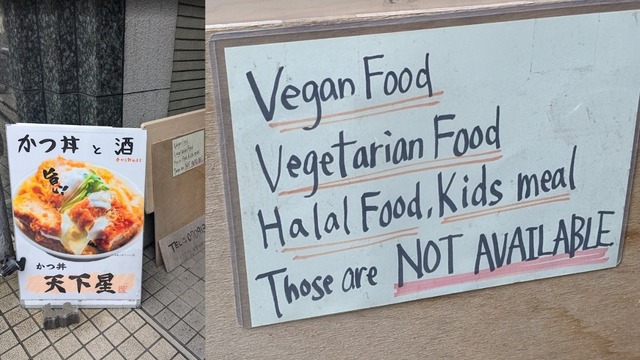 かつ丼 と 酒
旨い!
かつ丼
天下星
Vegan Food
Vegetarian Food
Halal Food, Kids meal
Those are NOT AVAILABLE